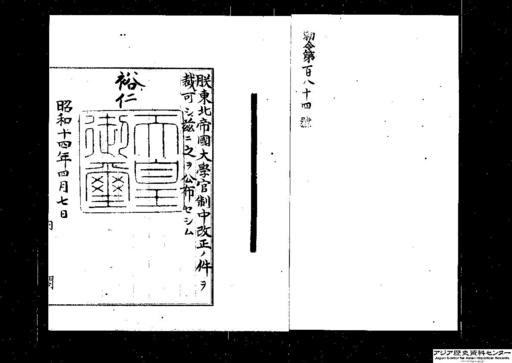 勅令第百八十四號
朕東北帝國大學官制中改正ノ件ヲ
裁可シ茲ニ之ヲ公布セシム
裕仁
天皇
御璽
昭和十四年四月七日
内閣
アジア歴史資料センター
Japan Center for Asian Historical Records